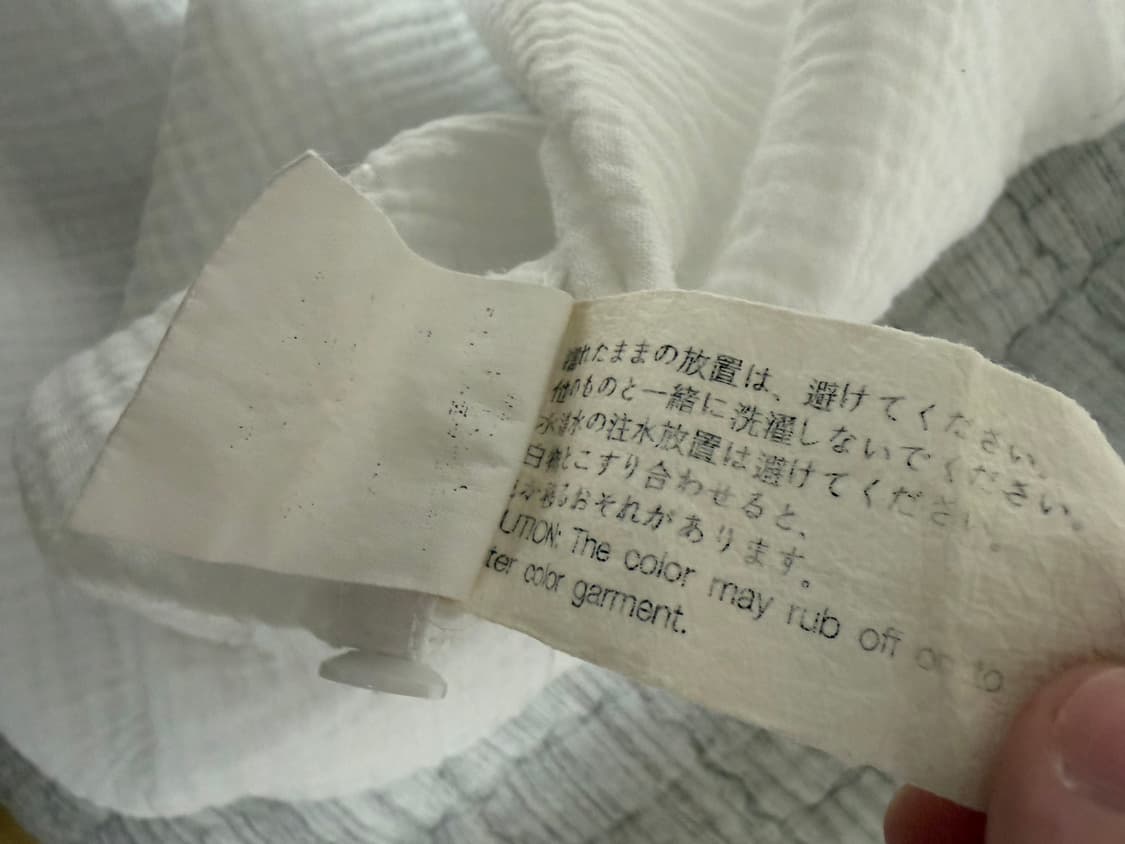 濡れたままの放置は、避けてください。
他のものと一緒に洗濯しないでください。
水の注水放置は避けてください。
こすり合わせると、
おそれがあります。
UTION: The color may rub off on to
ter color garment.